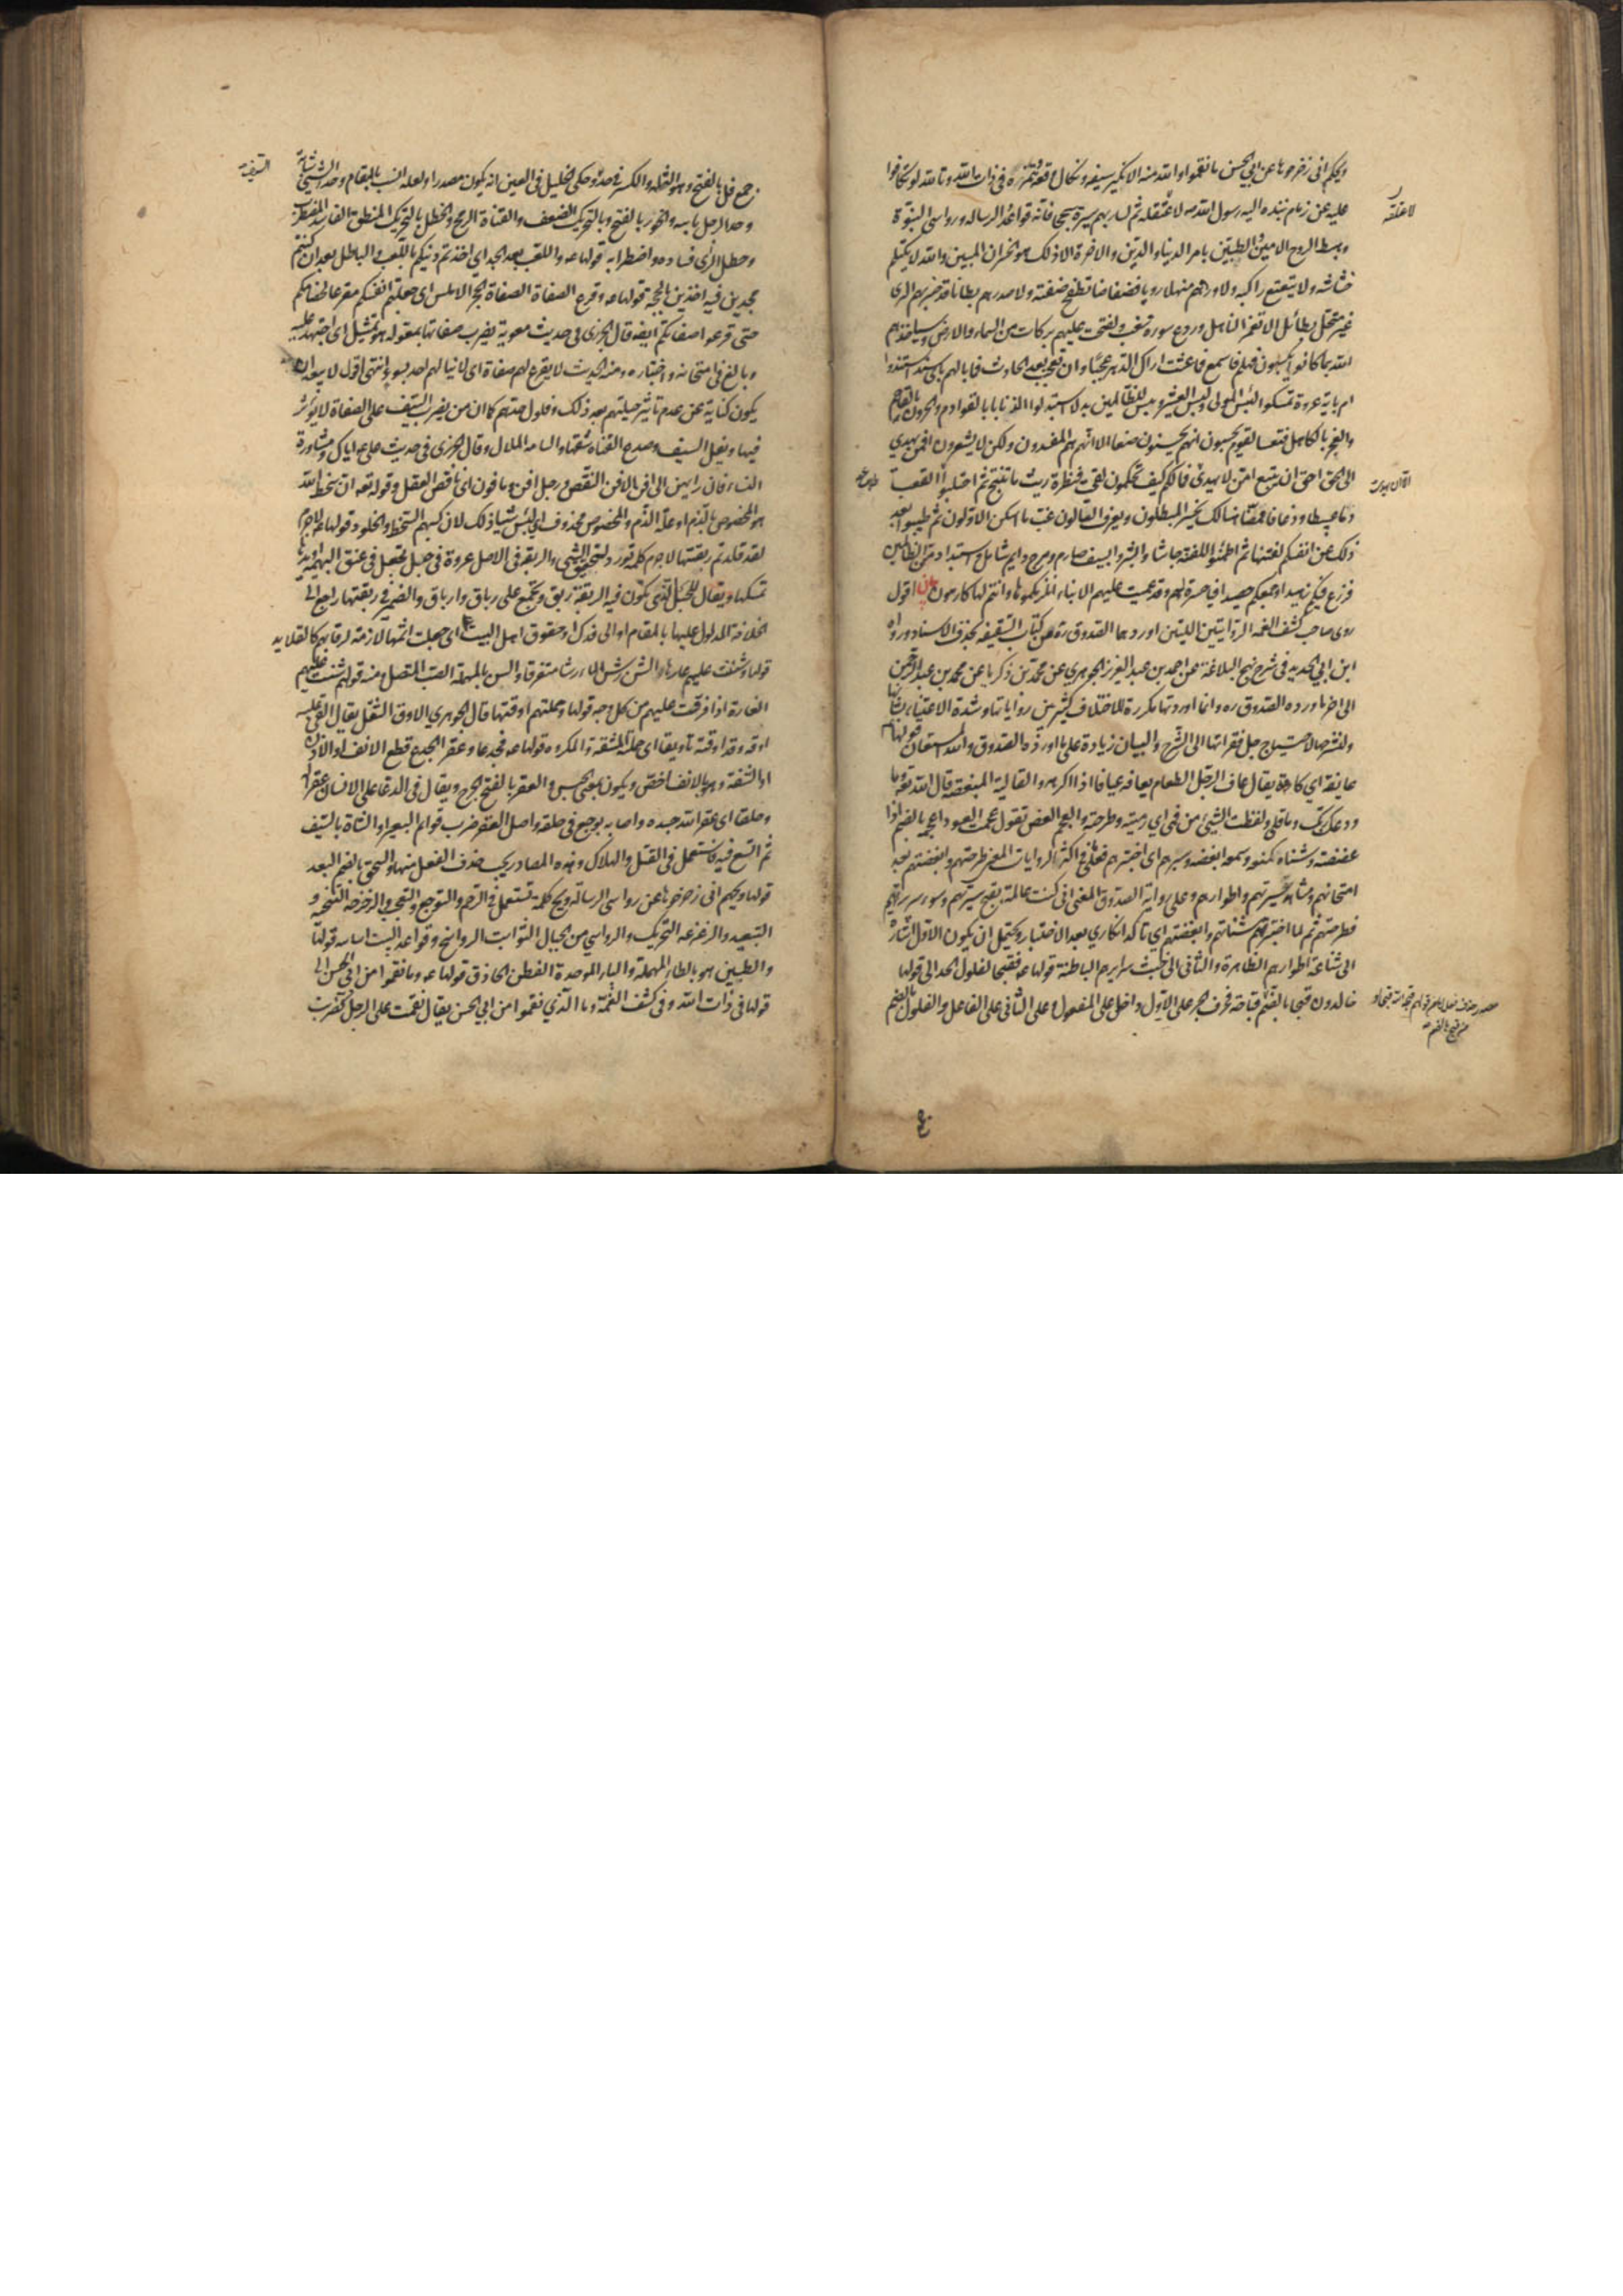 ويحكم انى زحزحوها عن ابي الحسن ما نقموا والله منه الا نكير سيفه ونكال وقعه وتنمره في ذات الله وتالله لو تكافوا
عليه عن زمام نبذه اليه رسول الله ص لاعتقله ثم لسار بهم سيرة سجحا فانه قواعد الرسالة ورواسى النبوة
ومهبط الروح الامين والطبيين بامر الدنيا والدين والاخرة الا ذلك هو الخسران المبين والله لا يكتلم
خشاشه ولا يتعتع راكبه ولاوردهم منهلا رويا فضفاضا تطفح ضفته ولاصدرهم بطانا قد خثر بهم الرى
غير متحل بطائل الا تغمر الناهل وردع سورة سغب ولفتحت عليهم بركات من السماء والارض وسياخذهم
الله بما كانوا يكسبون فهلم فاسمع فما عشت اراك الدهر عجبا وان تعجب بعد الحادث فما بالهم باى سند استندوا
ام باية عروة تمسكوا لبئس المولى ولبئس العشير وبئس للظالمين بدلا استبدلوا الذنابا بالقوادم والحرون بالقاحم
والعجز بالكاهل فتعسا لقوم يحسبون انهم يحسنون صنعا الا انهم هم المفسدون ولكن لا يشعرون افمن يهدي
الى الحق احق ان يتبع امن لا يهدى فما لكم كيف تحكمون لقحت فنظرة ريث ما تنتج ثم احتلبوا القعب
دما عبيطا وذعافا ممقرا هنالك يخسر المبطلون ويعرف التالون غب ما اسكن الاولون ثم طيبوا بعد
ذلك عن انفسكم لفتنها ثم اطمئنوا للفتنة جاشا وابشروا بسيف صارم وهرج دايم شامل واستبداد من الظالمين
فزرع فيئكم زهيدا وجمعكم حصيدا فيا حسرة لهم وقد عميت عليهم الانباء انلزمكموها وانتم لها كارهون بيان اقول
روى صاحب كشف الغمه الروايتين اللتين اوردهما الصدوق ره عن كتاب السقيفه بحذف الاسناد ورواه
ابن ابي الحديد في شرح نهج البلاغة عن احمد بن عبد العزيز الجوهري عن محمد بن زكريا عن محمد بن عبد الرحمن
الى اخر ما اورده الصدوق ره وانما اوردتها مكررة للاختلاف الكثير بين رواياتها وشدة الاعتناء بشانها
ولنشرحها لاحتياج جل فقراتها الى الشرح والبيان زيادة على ما اورده الصدوق والله المستعان قولها ع
عايفة اي كارهة يقال عاف الرجل الطعام يعافه عيافا اذا كرهه والقالية المبغضة قال الله تعه ما
ودعك ربك وما قلى ولفظت الشيئ من فمي اي رميته وطرحته والعجم العض تقول عجمت العود اعجمه بالضم اذا
عضضته وشناه كمنعه وسمعه ابغضه وسبرهم اى اختبرهم فعلى ما في اكثر الروايات المعنى طرحتهم وابغضتهم بعد
امتحانهم ومشاهدة سيرتهم واطوارهم وعلى رواية الصدوق المعنى انى كنت عالمة بقبح سيرتهم وسوء سريرتهم
فطرحتهم ثم لما اختبرتهم شناتهم وابغضتهم اي تاكد انكاري بعد الاختبار ويحتمل ان يكون الاول اشارة
الى شناعة اطوارهم الظاهرة والثانى الى خبث سرايرهم الباطنة قولها ع فقبحا لفلول الحد الى قولها
خالدون قبحا بالضم قباحة فحرف الجر على الاول داخل على المفعول وعلى الثانى على الفاعل والفلول بالضم
لاعتلقه
جمع فل بالفتح وهو الثلمة والكسر في حده وحكى الخليل في العين انه يكون مصدرا ولعله انسب بالمقام وحد الشئ شباته
وحد الرجل باسه والخور بالفتح وبالتحريك الضعف والقناة الرمح والخطل بالتحريك المنطق الفاسد المضطرب
وخطل الراى فساده واضطرابه قولها ع واللعب بعد الجد اى اخذتم دينكم باللعب والباطل بعد ان كنتم
مجدين فيه اخذين بالجد قولها ع وقرع الصفاة الصفاة الحجر الاملس اى جعلتم انفسكم مقرعا لخصامكم
حتى قرعوا صفاتكم ايضه قال الجزرى فى حديث معوية يضرب صفاتها بمعوله هو تمثيل اى اجتهد عليه
وبالغ في امتحانه واختباره ومنه الحديث لا يقرع لهم صفاة اى لا ينالهم احد بسوء انتهى اقول لا يبعد ان
يكون كناية عن عدم تاثير حيلتهم بعد ذلك وفلول حدهم كما ان من يضرب السيف على الصفاة لا يؤثر
فيها ويفل السيف وصدع القناة شقها والسامة الملال وقال الجزرى فى حديث على ع اياك ومشاورة
النساء فان رايهن الى افن الافن النقص ورجل افن ومافون اى ناقص العقل وقوله تعه ان سخط الله
هو المخصوص بالذم او علة الذم والمخصوص محذوف اى لبئس شيئا ذلك لان كسبهم السخط والخلود قولها ع لاجرم
لقد قلدتهم ربقتها لاجرم كلمة تورد لتحقيق الشئ والربقة في الاصل عروة في حبل تجعل في عنق البهيمة او يدها
تمسكها ويقال للحبل الذى تكون فيه الربقة ربق وتجمع على رباق وارباق والضمير في ربقتها راجع الى
الخلافة المدلول عليها بالمقام او الى فدك او حقوق اهل البيت ع اى جعلت اثمها لازمة لرقابهم كالقلايد
قولها وشننت عليهم عارها والشن رش الماء رشا متفرقا والسن بالمهملة الصب المتصل ومنه قولهم شنت عليهم
الغارة اذا فرقت عليهم من كل وجه قولها وحملتهم اوقتها قال الجوهري الاوق الثقل يقال القى عليه
اوقه وقد اوقته تاويقا اى حملته المشقة والمكروه قولها ع فجدعا وعقرا الجدع قطع الانف او الاذن
او الشفة وهو بالانف اخص ويكون بمعنى الحبس والعقر بالفتح الجرح ويقال في الدعا على الانسان عقرا له
وحلقا اى عقر الله جسده واصابه بوجع في حلقه واصل العقر ضرب قوائم البعير او الشاة بالسيف
ثم اتسع فيه فاستعمل في القتل والهلاك وهذه المصادر يجب حذف الفعل منها والسحق بالضم البعد
قولها ويحهم انى زحزحوها عن رواسى الرسالة ويح كلمة تستعمل في الترحم والتوجع والتعجب والزحزحة التنحية و
التبعيد والزعزعه التحريك والرواسي من الجبال الثوابت الرواسخ وقواعد البيت اساسه قولها
والطبين هو بالطاء المهملة والباء الموحدة الفطن الحاذق قولها ع وما نقموا من ابي الحسن الى
قولها في ذات الله وفي كشف الغمة وما الذي نقموا من ابي الحسن يقال نقمت على الرجل كضرب